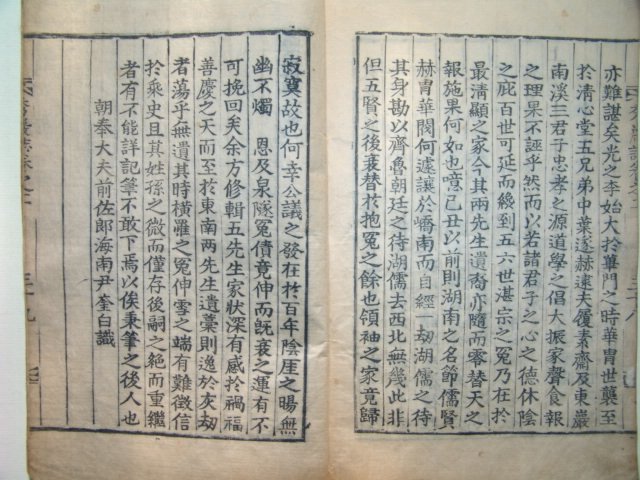 亦難諶矣光之李始大於簪門之時華胄世襲至
於淸心堂五兄弟中葉遂赫遠夫履素齋及東巖
南溪三君子忠孝之源道學之倡大振家聲食報
之理果不誣乎然而以若諸君子之心之德休陰
之庇百世可延而纔到五六世湛宗之冤乃在於
最淸顯之家今其兩先生遺裔亦隨而零替天之
報施果何如也噫己丑以前則湖南之名節儒賢
赫胄華閥何遽讓於嶠南而自經一劫湖儒之待
其身勘以齊魯朝廷之待湖儒去西北無幾此非
但五賢之後衰替於抱冤之餘也領袖之家竟歸
寂寞故也何幸公議之發在於百年陰崖之暘無
幽不燭 恩及泉隧冤債竟伸而旣衰之運有不
可挽回矣余方修輯五先生家狀深有感於禍福
善慶之天而至於東南两先生遺藁則逸於灰劫
者蕩乎無遺其時橫罹之冤伸雪之端有難徵信
於乘史且其姓孫之微而僅存後嗣之絶而重繼
者有不能詳記筆不敢下焉以俟秉筆之後人也
朝奉大夫前佐郞海南尹奎白識
三十九
三十八